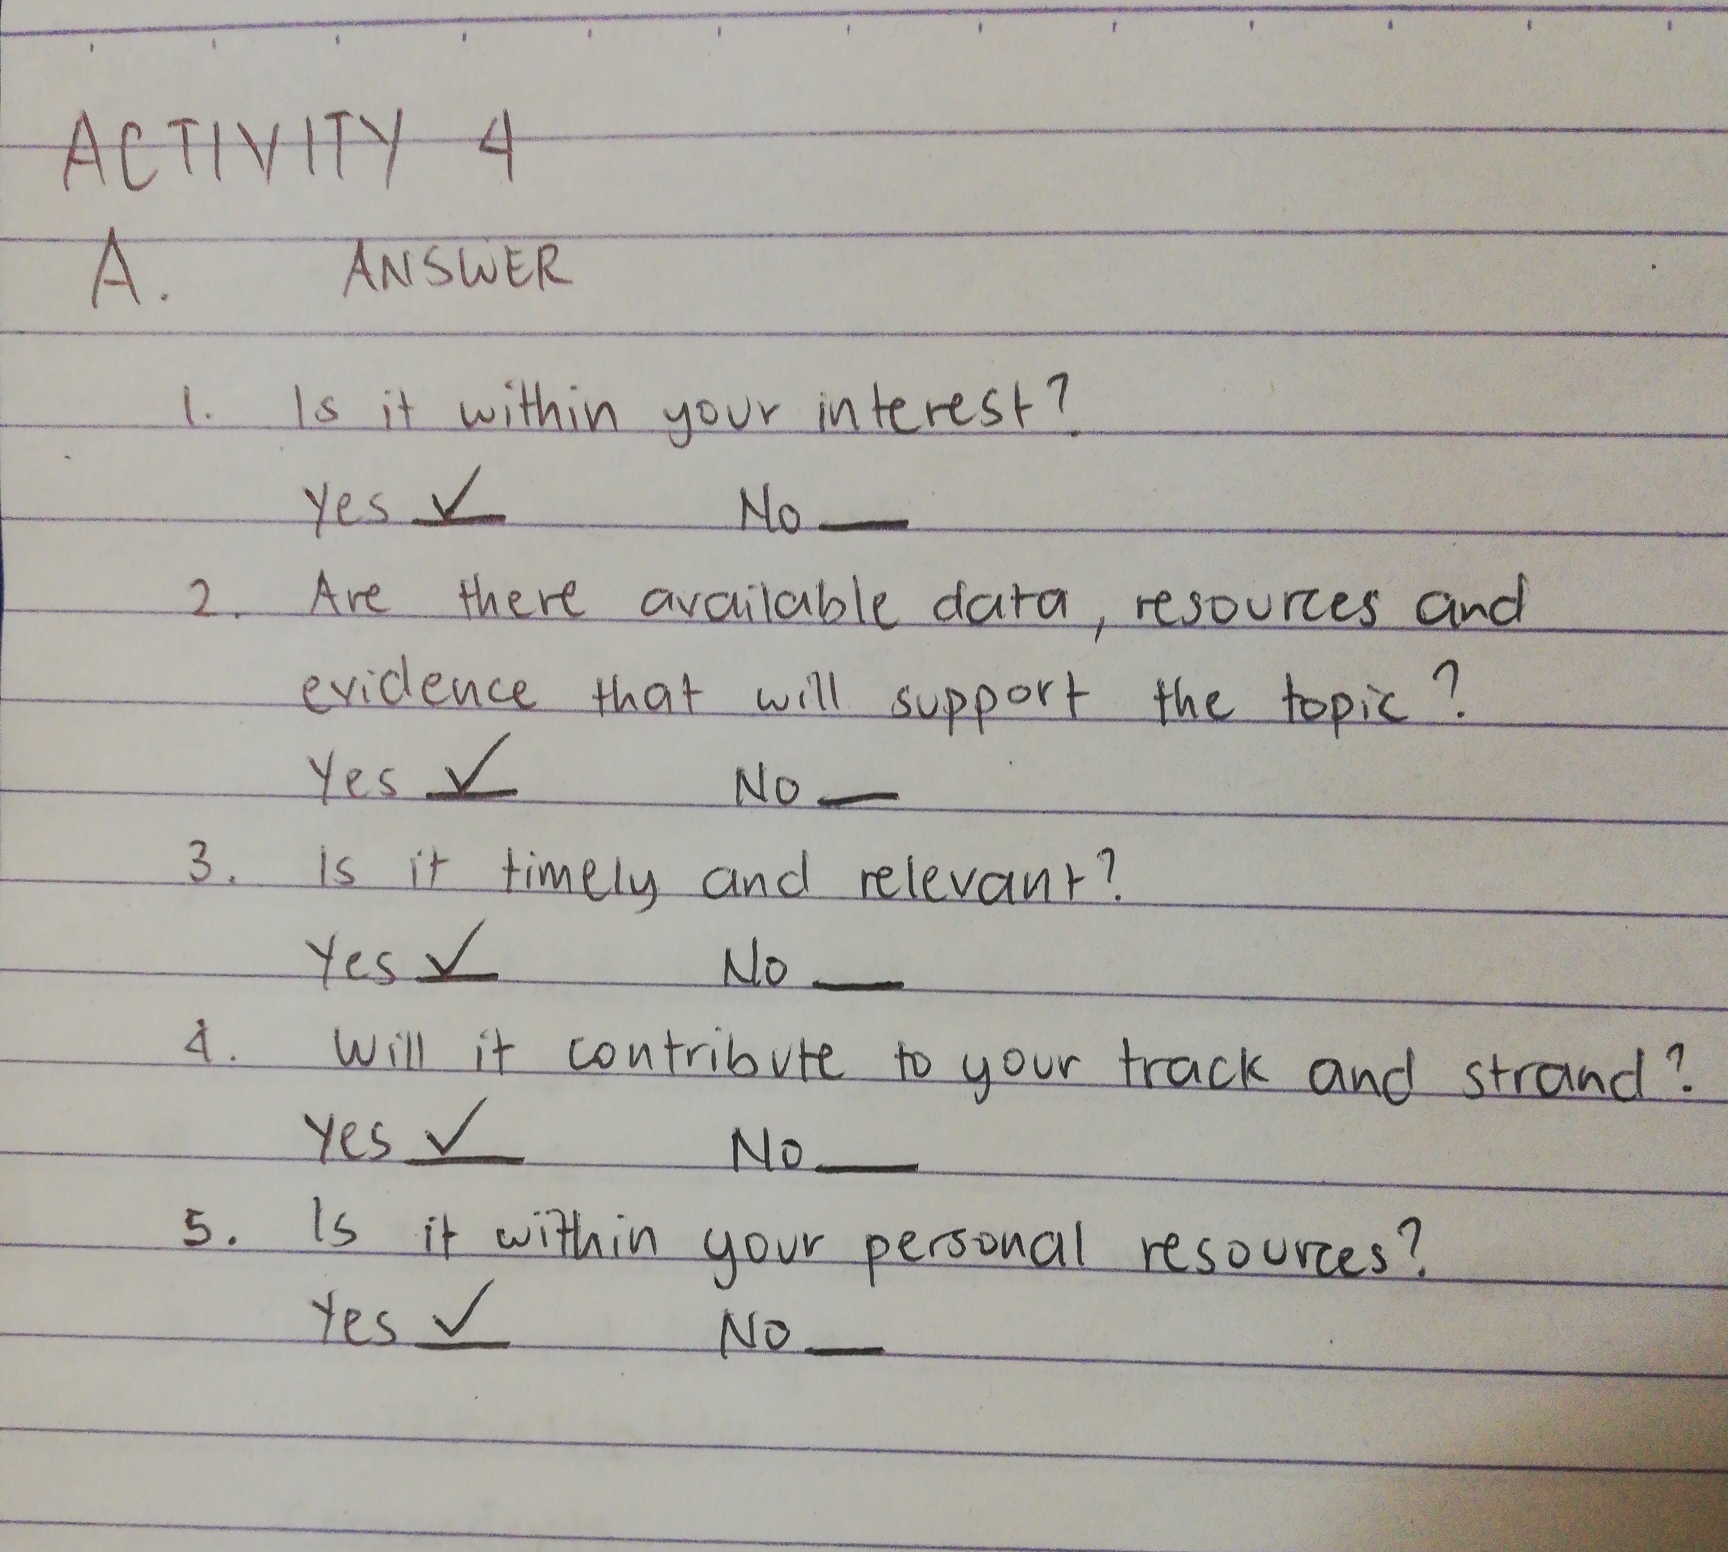 ACTIVITY 4
A. ANSWER
1. Is it within your interest?
Yes ✓ No __
2. Are there available data, resources and
evidence that will support the topic?
Yes ✓ No __
3. Is it timely and relevant?
Yes ✓ No __
4. Will it contribute to your track and strand?
Yes ✓ No __
5. Is it within your personal resources?
Yes ✓ No __